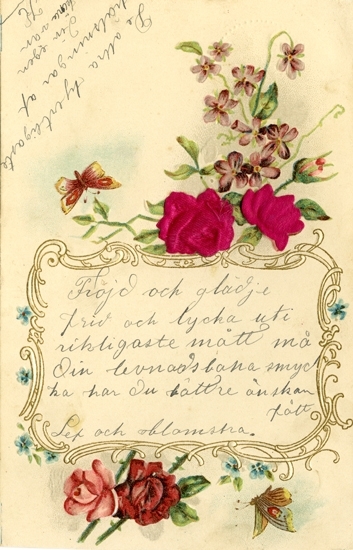 Fröjd och glädje
frid och lycka uti
rikligaste mått må
Din levnadsbana smyc
ka har du bättre önskan
fått
Lef och blomstra.
De allra hjertligaste
hälsningar af
Din egen
vän